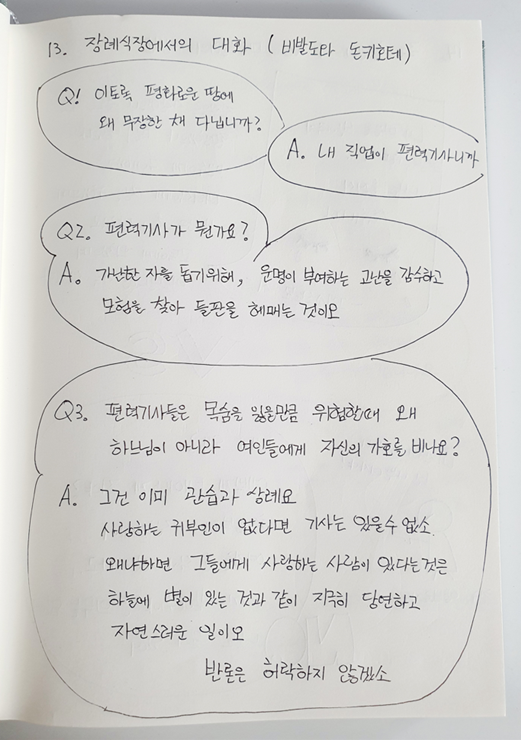 13. 장례식장에서의 대화 (비발도와 돈키호테)
Q1 이토록 평화로운 땅에
왜 무장한 채 다닙니까?
A. 내 직업이 편력기사니까
Q2. 편력기사가 뭔가요?
A. 가난한 자를 돕기위해, 운명이 부여하는 고난을 감수하고
모험을 찾아 들판을 헤매는 것이오
Q3. 편력기사들은 목숨을 잃을만큼 위험할때 왜
하느님이 아니라 여인들에게 자신의 가호를 비나요?
A. 그건 이미 관습과 상례요
사랑하는 귀부인이 없다면 기사는 있을수 없소.
왜냐하면 그들에게 사랑하는 사람이 있다는것은
하늘에 별이 있는 것과 같이 지극히 당연하고
자연스러운 일이오
반론은 허락하지 않겠소